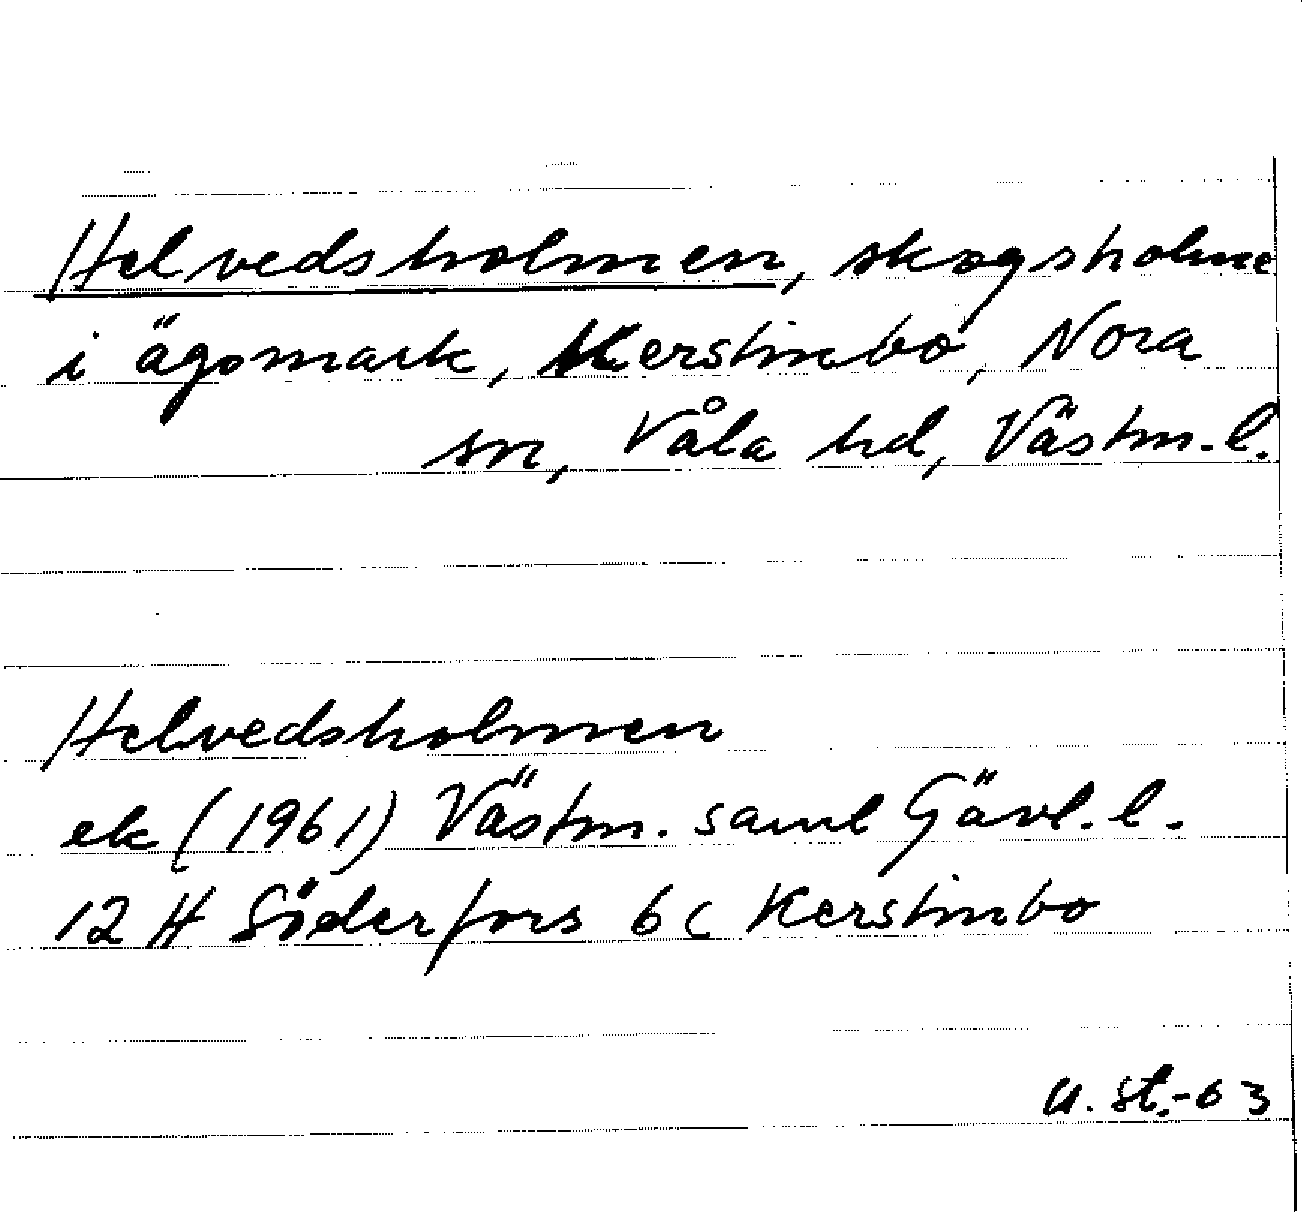 Helvedsholmen, skogsholme
i ägomark, Kerstinbo, Nora
sn, Våla hd, Västm. l.
Helvedsholmen
ek (1961) Västm. samt Gävl. l.
12 H Söderfors 6 c Kerstinbo
U. St.-63